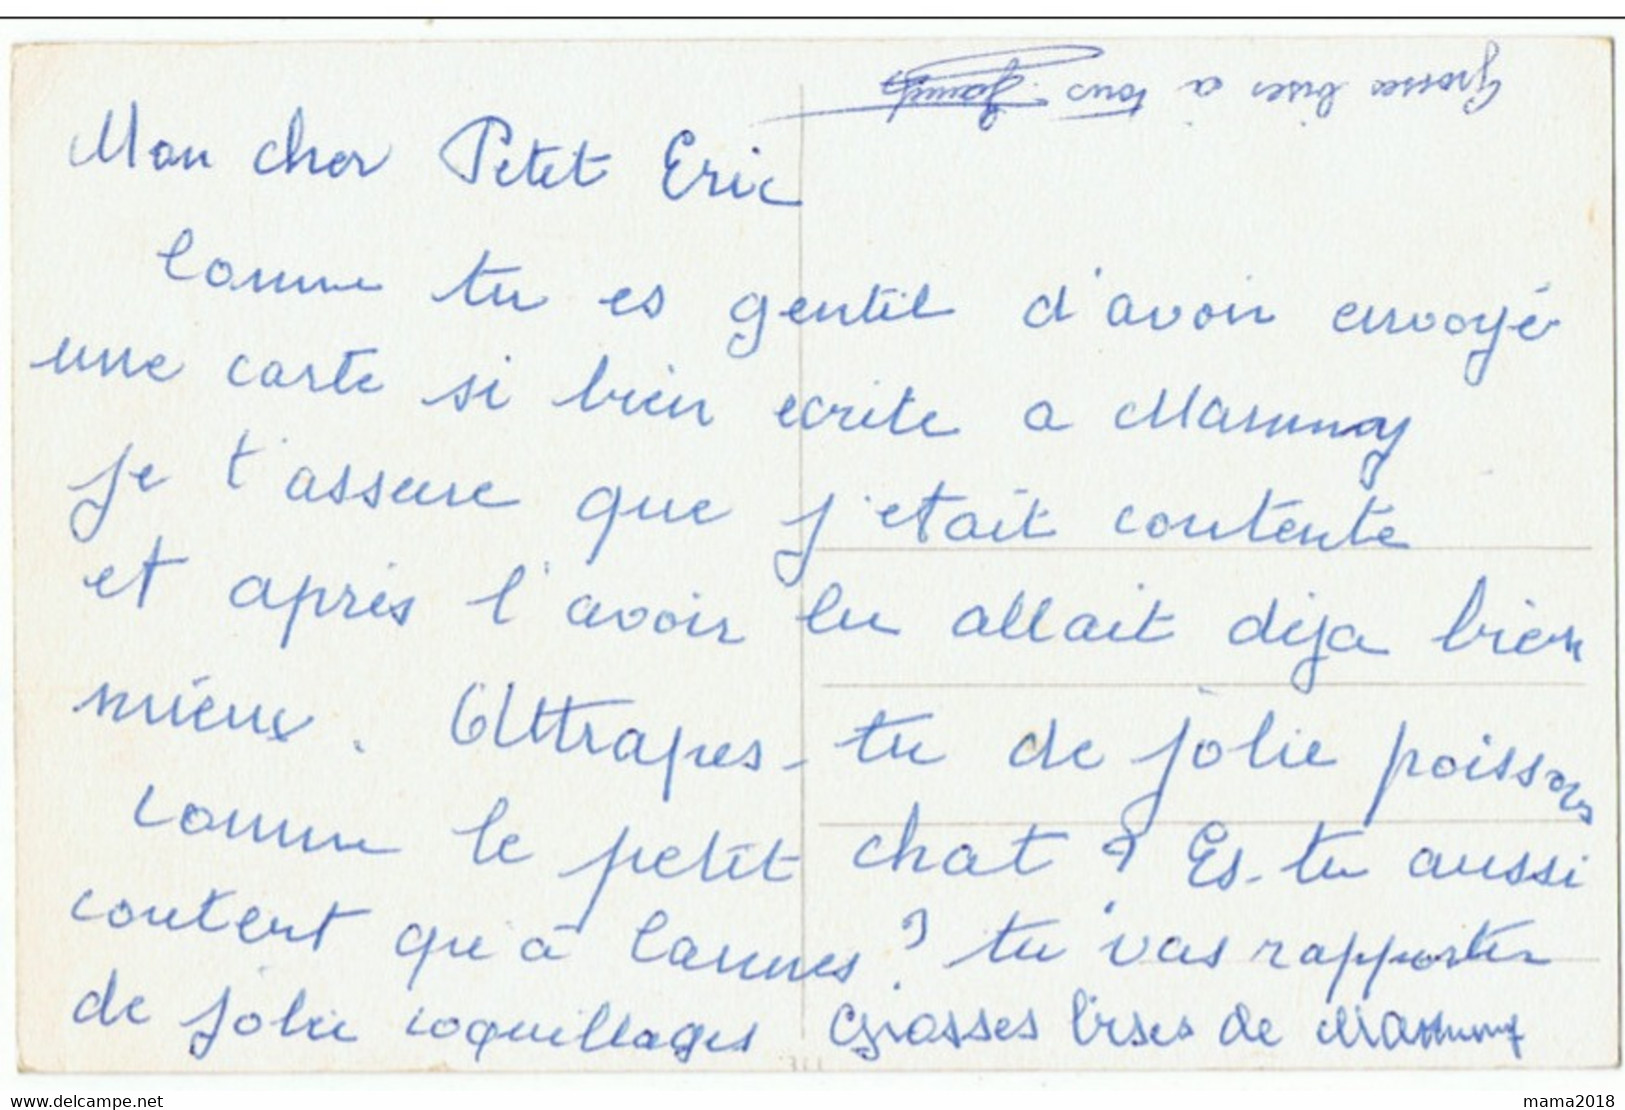 Grosses bises à tous.
Mon cher Petit Eric
Comme tu es gentil d'avoir envoyé
une carte si bien ecrite a Mammy
je t'assure que j'etait contente
et après l'avoir lu allait dèja bien
mieux. Attrapes-tu de jolie poissons
comme le petit chat ? Es-tu aussi
content qu'à Cannes ? tu vas rapporter
de jolie coquillages Grosses bises de Mammy
www.delcampe.net
mama2018